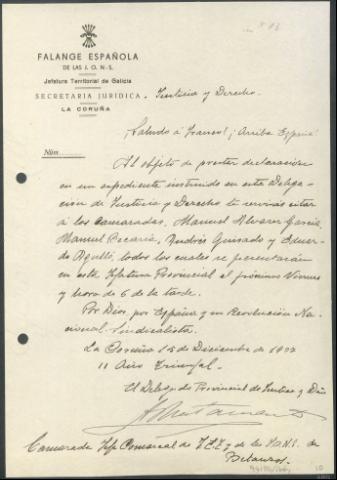 FALANGE ESPAÑOLA
DE LAS J. O. N.-S.
Jefatura Territorial de Galicia
SECRETARIA JURIDICA. - Justicia y Derecho.
LA CORUÑA
¡Saludo á Franco! ¡Arriba España!
Núm.
Al objeto de prestar declaracion
en un expediente instruido en esta Delega-
ción de Justicia y Derecho te servirás citar
á los camaradas, Manuel Alvarez García,
Manuel Becaria, Andrés Guisado y Eduar-
do Agulló, todos los cuales se presentarán
en esta Jefatura Provincial el próximo Viernes
y hora de 6 de la tarde.
Por Dios, por España y su Revolución Na-
cional-Sindicalista.
La Coruña 15 de Diciembre de 1937
II Año Triunfal.
El Delegado Provincial de Justicia y
Camarada Jefe Comarcal de F.E.T. y de las J.O.N.S. de
Betanzos.